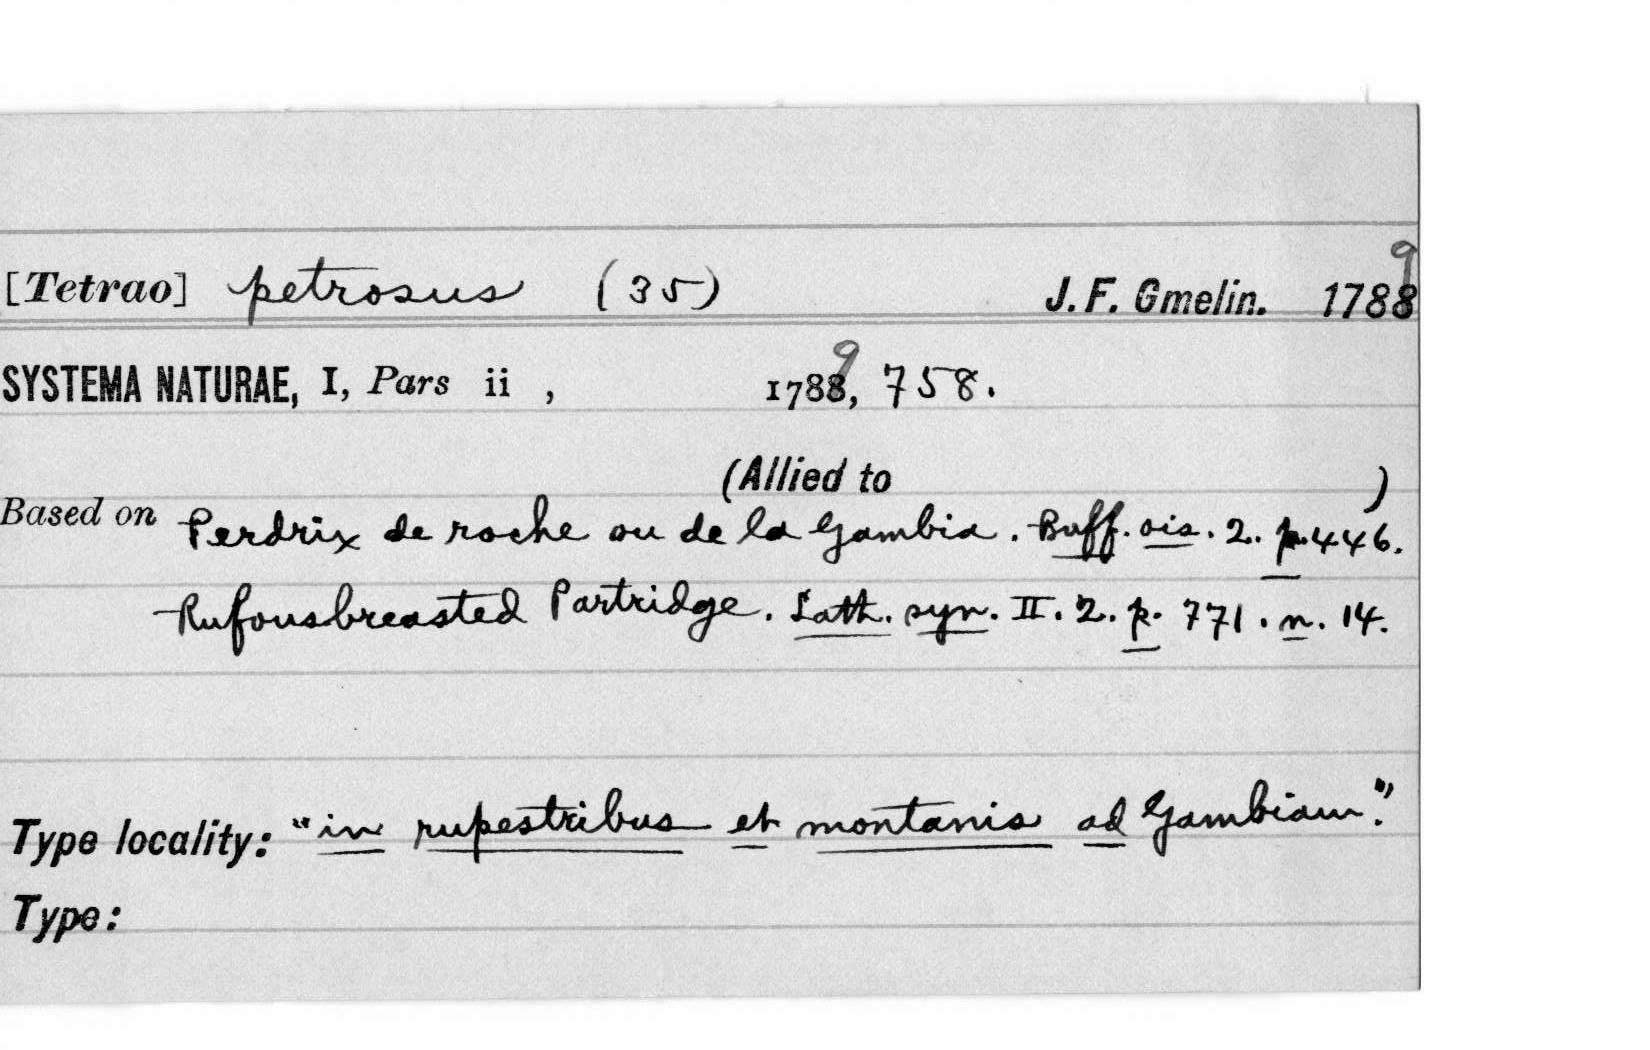 [Tetrao] petrosus (35) J. F. Gmelin. 1789
SYSTEMA NATURAE, I, Pars ii , 1789, 758.
(Allied to )
Based on Perdrix de roche ou de la Gambia. Buff. ois. 2. p. 446.
Rufousbreasted Partridge. Lath. syn. II. 2. p. 771. n. 14.
Type locality: "in rupestribus et montanis ad Gambiam".
Type: